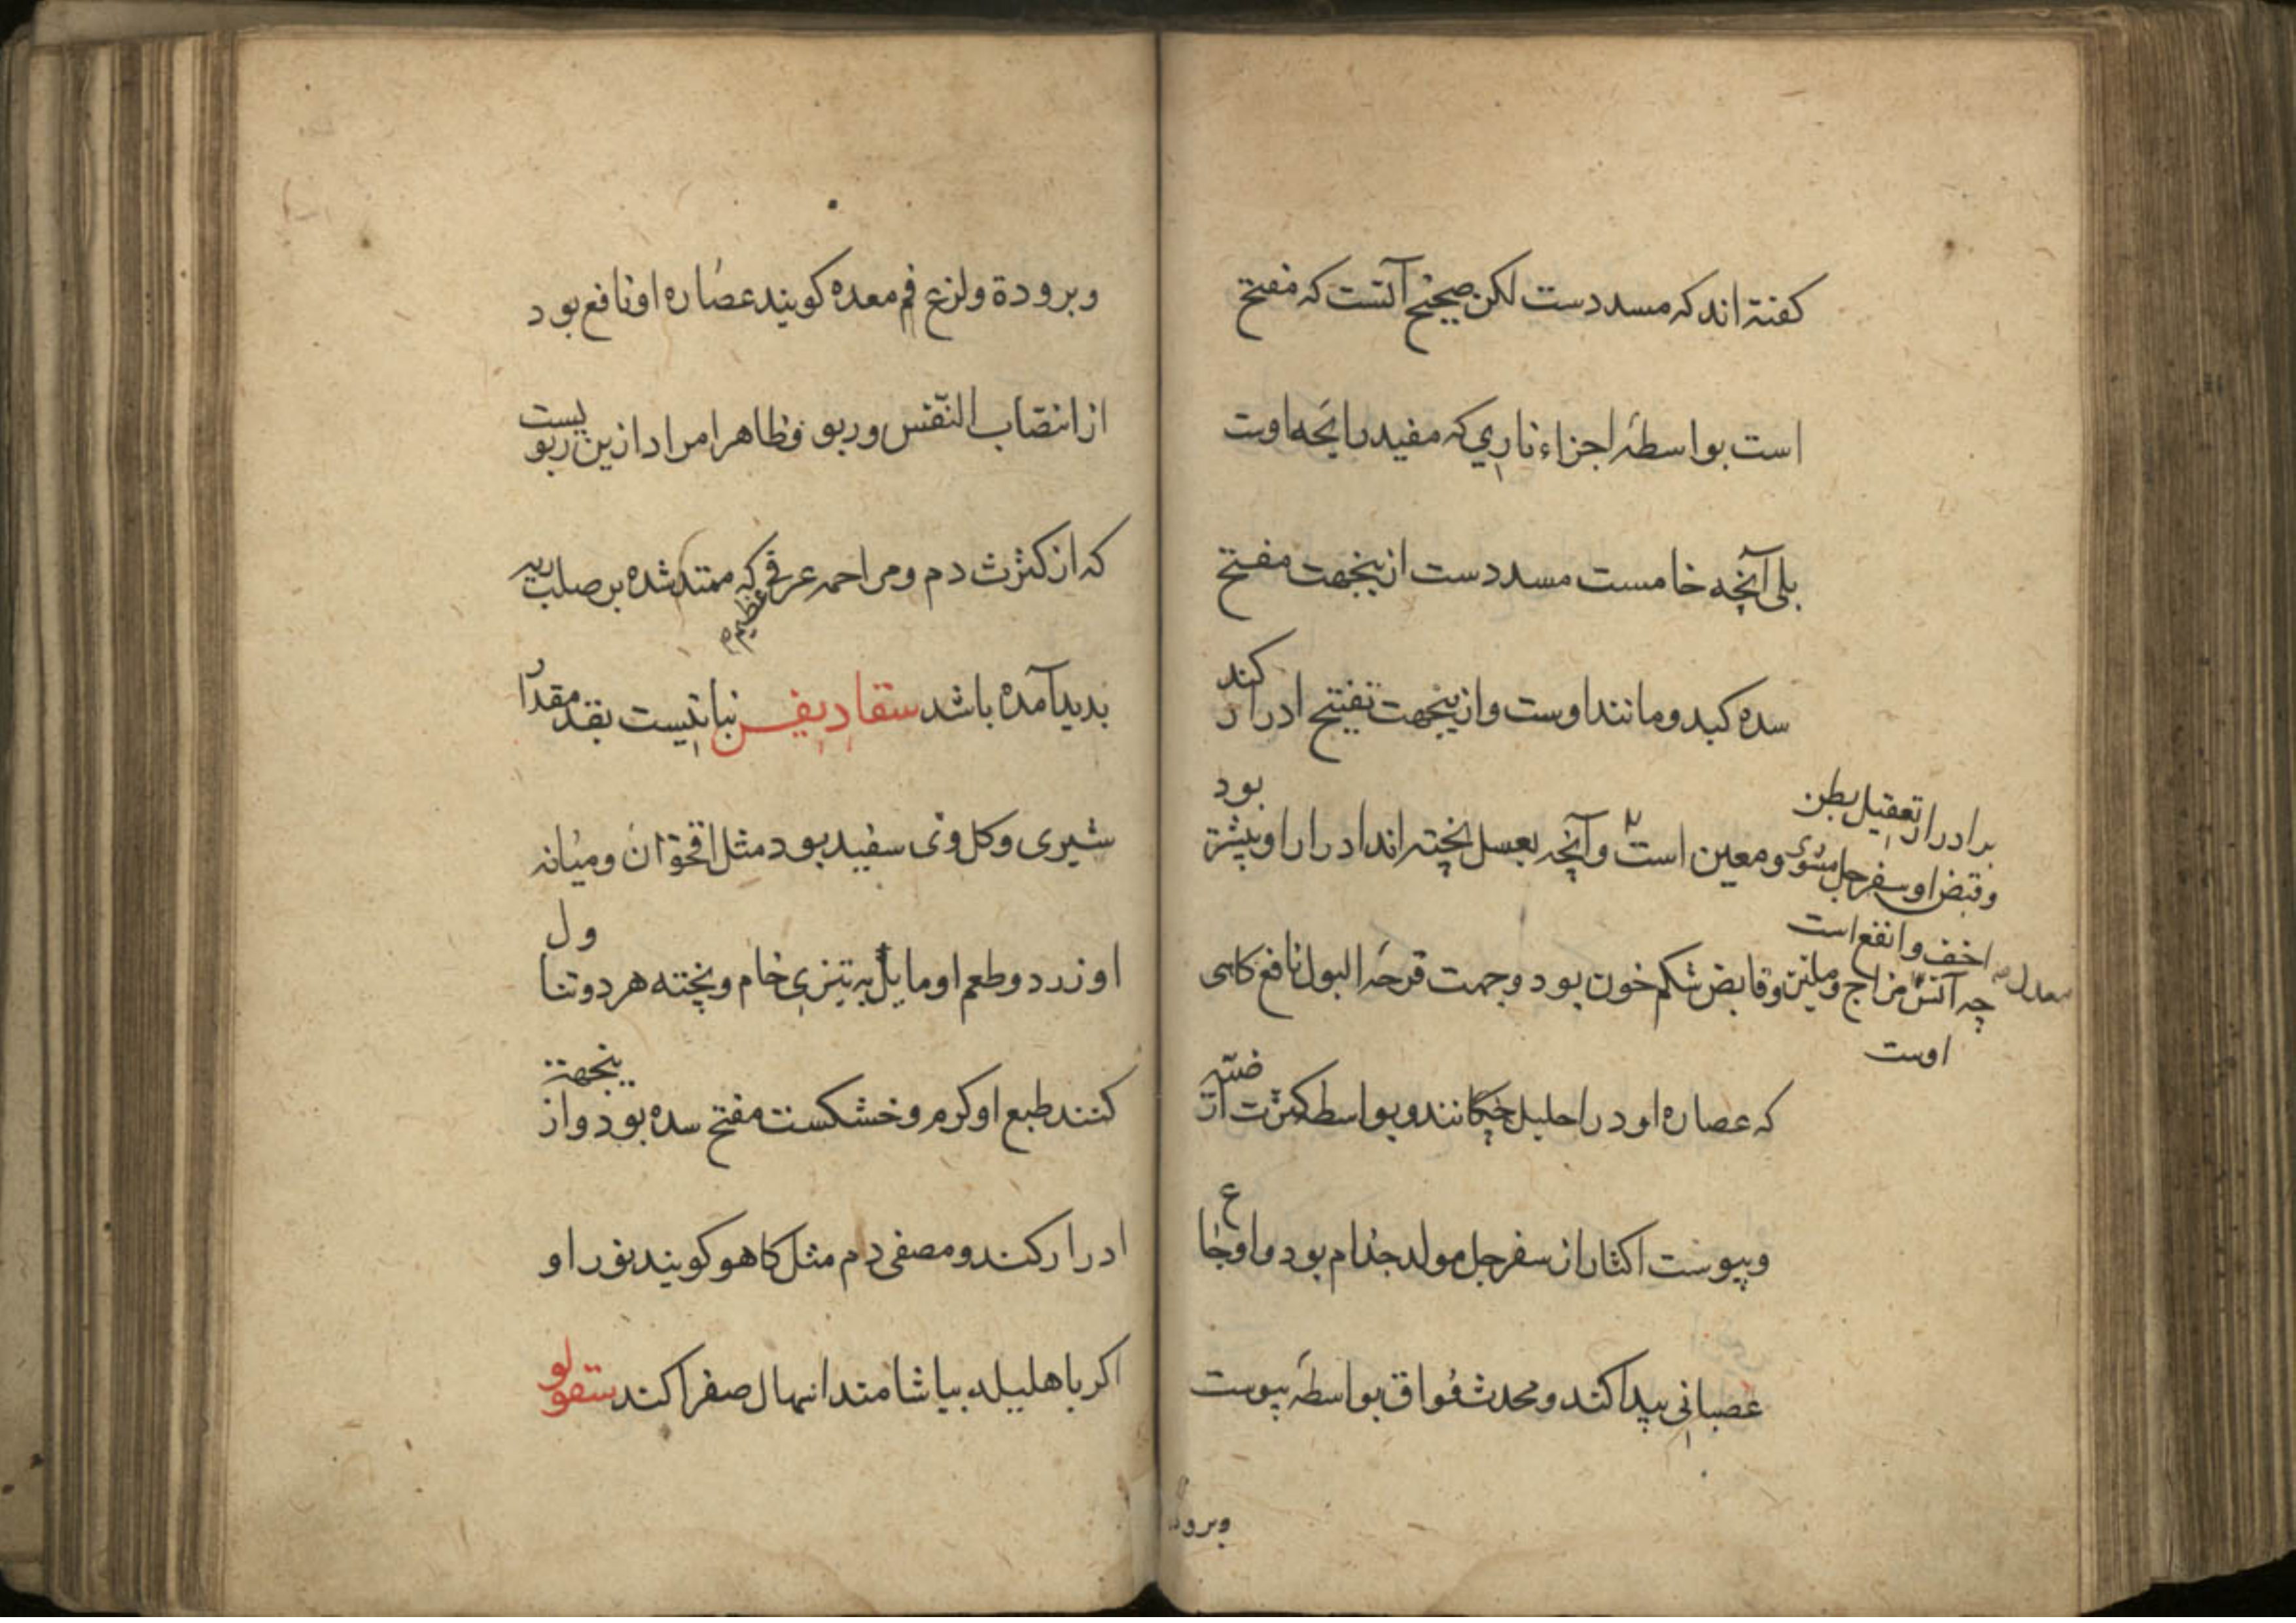 كفته اند كه مسددست لكن صحيح آنست كه مفتح
است بواسطهٔ اجزاء ناري كه مفيد رايحه اوست
بلى آنچه خامست مسددست ازينجهت مفتح
سده كبد و مانند اوست و ازينجهت تفتيح ادرار كند
و معين است و آنچه بعسل پخته اند ادرار او بيشتر بود
بر ادرار تعقيل بطن
و قبض او سفرجل مشوى
اخف و انفع است
چه آتش مزاج و ملين و قابض شكم خون بود و جهت قرحهٔ البول نافع كاهى
معدل
اوست
كه عصاره او در احليل چكانند و بواسطه كثرت ارضيّه
و يبوست اكثار از سفرجل مولد جذام بود و اوجاع
عصباني پيدا كند و محدث فُواق بواسطهٔ يبوست
وبرودة
وبرودة ولزع فم معده كويند عصاره او نافع بود
از انتصاب النّفس و ربو و ظاهرا مراد ازين ربويست
كه از كثرث دم و مزاحمه عرقى كه ممتد شده بر صلب
عظيم
بديد آمده باشد سقاديفس نباتيست بقد مقدار
شبرى و كل وى سفيد بود مثل اقحوان و ميانه
او زرد و طعم او مايل به تيزي خام و پخته هر دو تناول
كنند طبع او كرم و خشكست مفتح سده بود و ازينجهت
ادرار كند و مصفى دم مثل كاهو كويند بزر او
اكر با هليله بياشامند اسهال صفرا كند سقولو